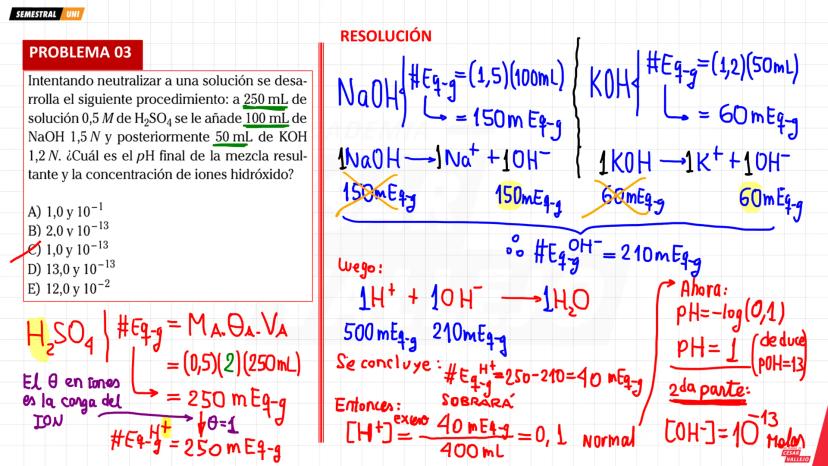 SEMESTRAL UNI
PROBLEMA 03
Intentando neutralizar a una solución se desa-
rrolla el siguiente procedimiento: a 250 mL de
solución 0,5 M de H₂SO₄ se le añade 100 mL de
NaOH 1,5 N y posteriormente 50 mL de KOH
1,2 N. ¿Cuál es el pH final de la mezcla resul-
tante y la concentración de iones hidróxido?
A) 1,0 y 10⁻¹
B) 2,0 y 10⁻¹³
C) 1,0 y 10⁻¹³
D) 13,0 y 10⁻¹³
E) 12,0 y 10⁻²
H₂SO₄ | #Eq-g = M_A.θ_A.V_A
= (0,5)(2)(250mL)
= 250 mEq-g
El θ en iones
es la carga del
ION
θ=1
#Eq-g^H⁺ = 250 mEq-g
RESOLUCIÓN
NaOH { #Eq-g = (1,5)(100mL)
= 150mEq-g
1NaOH → 1Na⁺ + 1OH⁻
150mEq-g 150mEq-g
KOH { #Eq-g = (1,2)(50mL)
= 60mEq-g
1KOH → 1K⁺ + 1OH⁻
60mEq-g 60mEq-g
∴ #Eq-g^OH⁻ = 210mEq-g
Luego:
1H⁺ + 1OH⁻ → 1H₂O
500mEq-g 210mEq-g
Se concluye: #Eq-g^H⁺ = 250-210 = 40 mEq-g
SOBRARÁ
Entonces:
[H⁺]^exceso = 40 mEq-g / 400 mL = 0,1 Normal
Ahora:
pH = -log(0,1)
pH = 1 (de deduce pOH=13)
2da parte:
[OH⁻] = 10⁻¹³ Molar
CESAR
VALLEJO